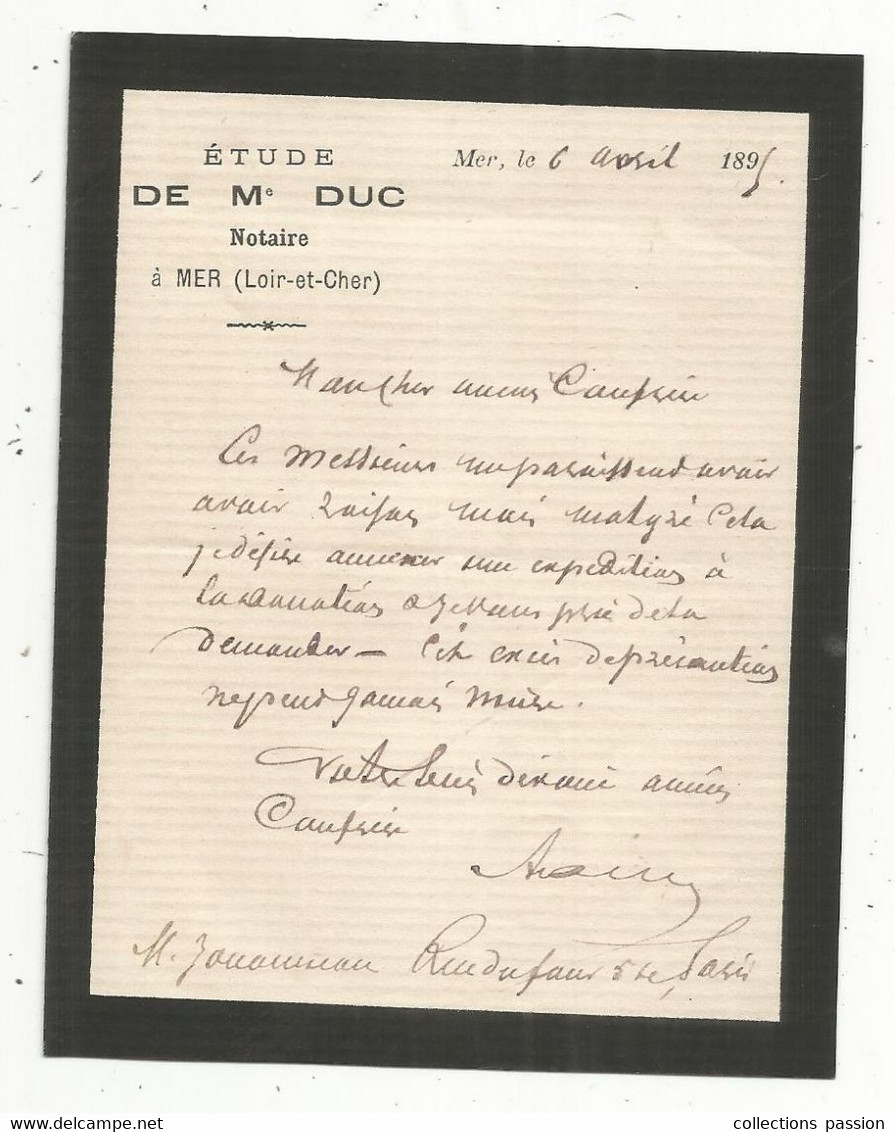 ÉTUDE
DE Me DUC
Notaire
à MER (Loir-et-Cher)
Mer, le 6 avril 1895.
Mon cher ancien Confrère
Ces Messieurs me paraissent avoir
avoir raison mais malgré cela
je désire annexer une expédition à
la donation & je vous prie de la
demander — Cet excès de précaution
ne peut jamais nuire.
Votre bien dévoué ancien
Confrère
M. Rue du four Paris
collections passion